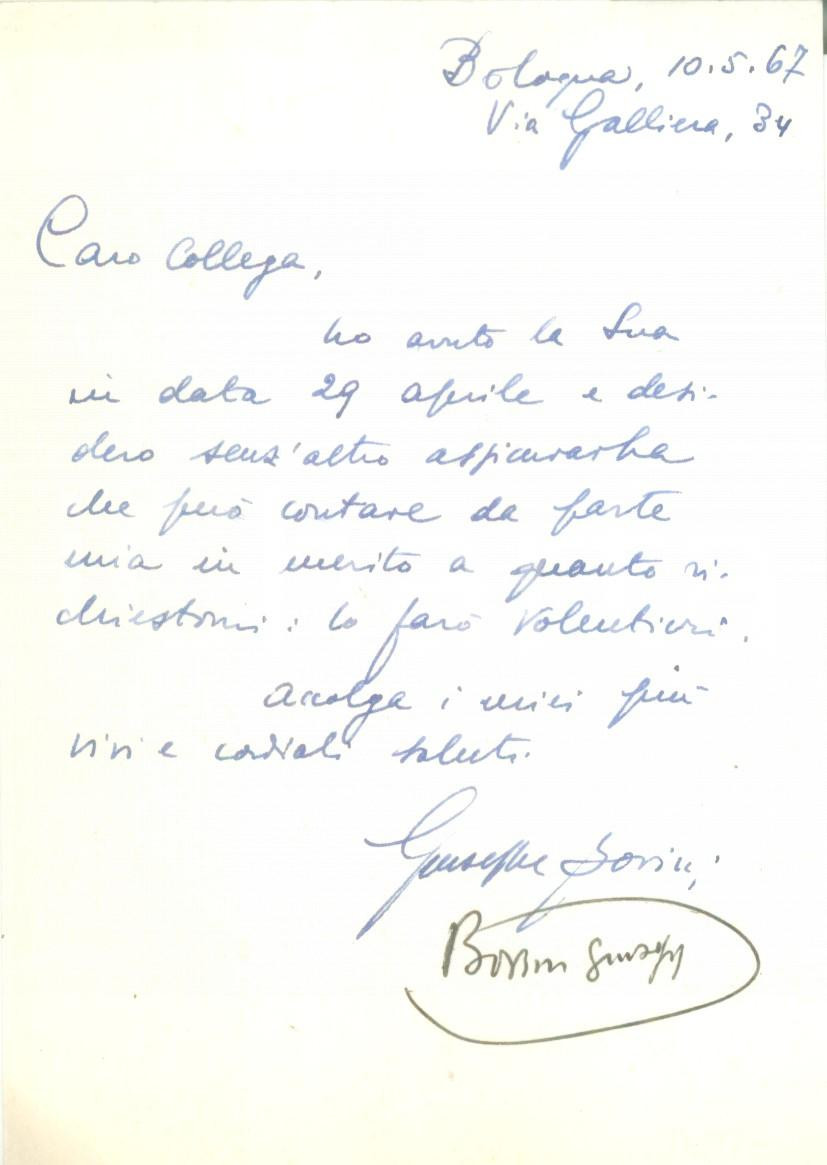 Bologna, 10.5.67
Via Galliera, 34
Caro Collega,
ho avuto la Sua
in data 29 aprile e desi-
dero senz'altro assicurarLa
che può contare da parte
mia in merito a quanto ri-
chiestomi: lo farò volentieri.
Accolga i miei più
vivi e cordiali saluti.
Giuseppe
Giusepp